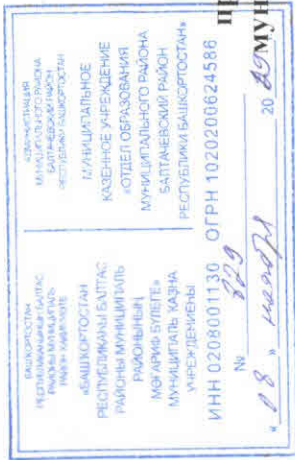 БАШКОРТОСТАН
РЕСПУБЛИКАҺЫНЫҢ БАЛТАС
РАЙОНЫ МУНИЦИПАЛЬ
РАЙОН ХАКИМИӘТЕ
«БАШҠОРТОСТАН
РЕСПУБЛИКАҺЫ БАЛТАС
РАЙОНЫ МУНИЦИПАЛЬ
РАЙОНЫНЫҢ
МӘҒАРИФ БҮЛЕГЕ»
МУНИЦИПАЛЬ КАЗНА
УЧРЕЖДЕНИЕҺЫ
АДМИНИСТРАЦИЯ
МУНИЦИПАЛЬНОГО РАЙОНА
БАЛТАЧЕВСКИЙ РАЙОН
РЕСПУБЛИКИ БАШКОРТОСТАН
МУНИЦИПАЛЬНОЕ
КАЗЕННОЕ УЧРЕЖДЕНИЕ
«ОТДЕЛ ОБРАЗОВАНИЯ
МУНИЦИПАЛЬНОГО РАЙОНА
БАЛТАЧЕВСКИЙ РАЙОН
РЕСПУБЛИКИ БАШКОРТОСТАН»
ИНН 0208001130 ОГРН 1020200624586
№ 829
« 08 » ноября 20
ПР
МУН